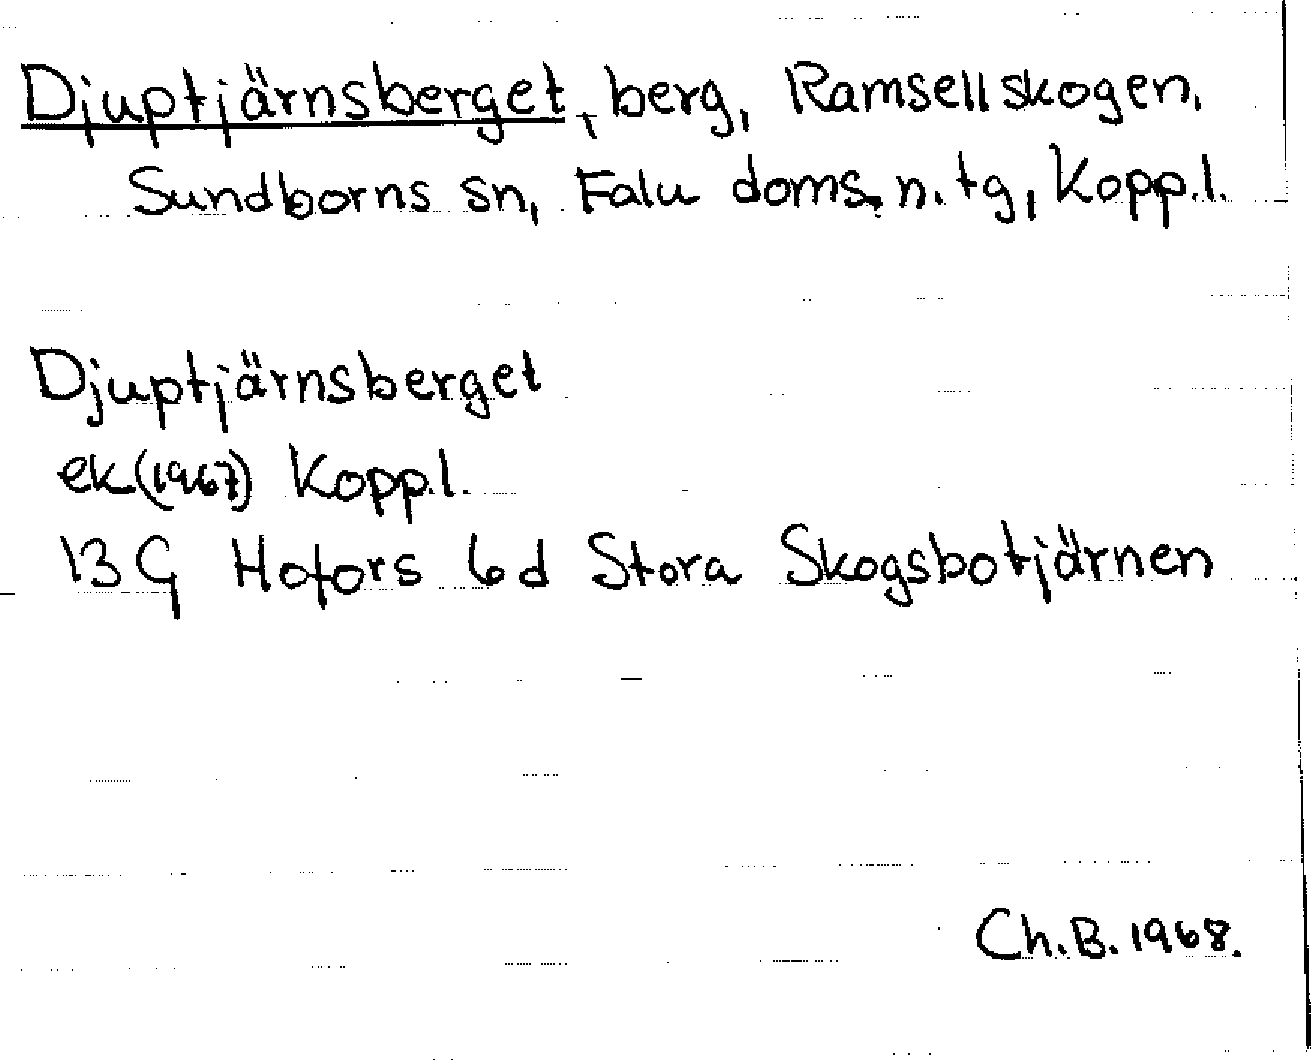 Djuptjärnsberget, berg, Ramsellskogen,
Sundborns sn, Falu doms. n. tg, Kopp.l.
Djuptjärnsberget
ek(1967) Kopp.l.
13 G Hofors 6 d Stora Skogsbotjärnen
Ch.B. 1968.